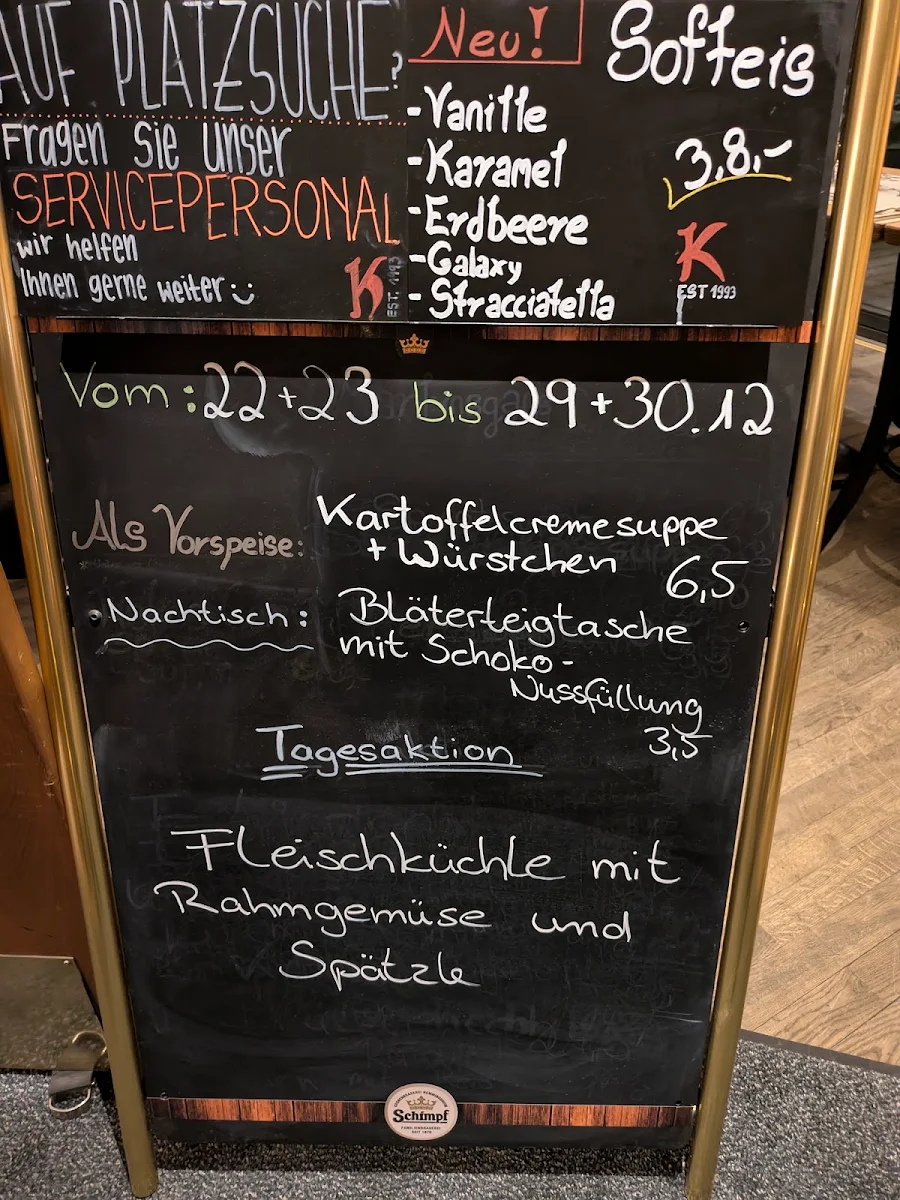 AUF PLATZSUCHE?
Fragen Sie unser
SERVICEPERSONAL
wir helfen
Ihnen gerne weiter
K
EST. 1993
Neu!
Softeis
-Vanille
-Karamel
-Erdbeere
-Galaxy
-Stracciatella
3,8.-
K
EST 1993
Vom: 22+23 bis 29+30.12
Als Vorspeise:
Kartoffelcremesuppe
+ Würstchen
6,5
Nachtisch:
Bläterteigtasche
mit Schoko-
Nussfüllung
3,5
Tagesaktion
Fleischküchle mit
Rahmgemüse und
Spätzle
Schimpf
FAMILIENBRAUEREI
SEIT 1870